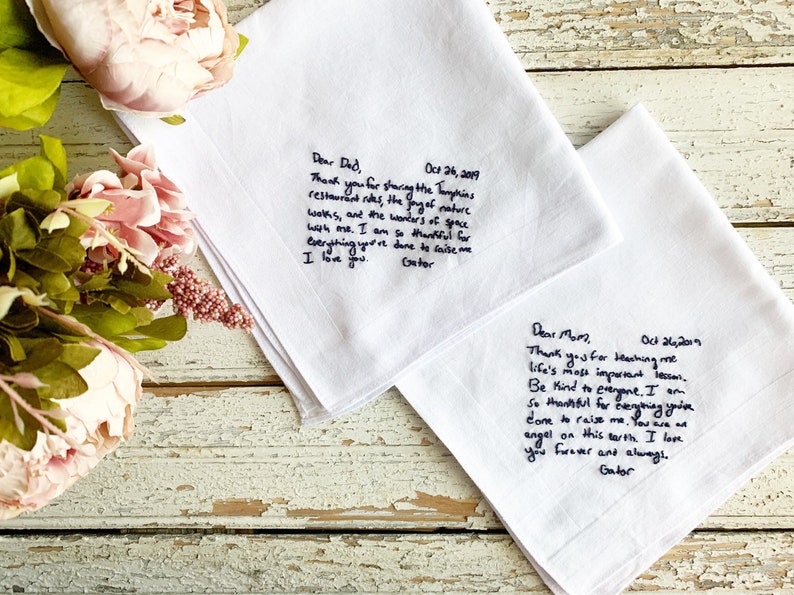 Dear Dad, Oct 26, 2019
Thank you for sharing the Tompkins
restaurant rules, the joy of nature
walks, and the wonders of space
with me. I am so thankful for
everything you've done to raise me
I love you. Gator
Dear Mom, Oct 26, 2019
Thank you for teaching me
life's most important lesson.
Be Kind to everyone. I am
so thankful for everything you've
done to raise me. You are an
angel on this earth. I love
you forever and always.
Gator